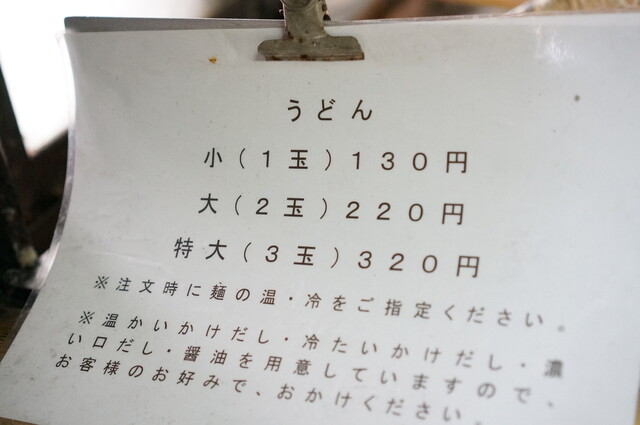 うどん
小(1玉)130円
大(2玉)220円
特大(3玉)320円
※注文時に麺の温・冷をご指定ください。
※温かいかけだし・冷たいかけだし・濃
い口だし・醤油を用意していますので、
お客様のお好みで、おかけください。